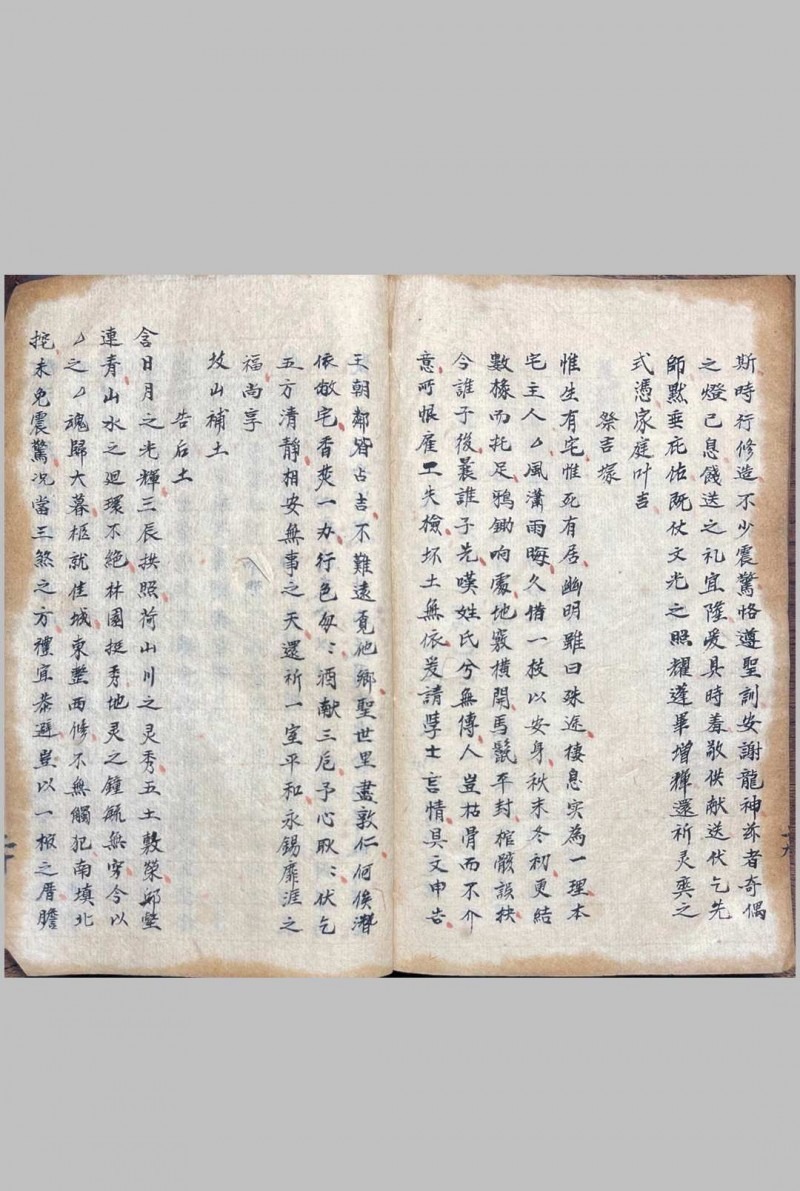 斯時行修造不少震驚恪遵聖訓安謝龍神茲者奇偶
之燈已息餞送之礼宜隆爰具時羞敬供献送伏乞先
師黙垂庇佑既仗文光之照耀蓬蓽增輝還祈灵爽之
式憑家庭叶吉
祭吉塚
惟生有宅惟死有居幽明雖曰殊途棲息实為一理本
宅主人厶風瀟雨晦久借一枝以安身秋末冬初更結
數椽而托足鴉鋤响處地竅横開馬鬛平封棺骸誤抉
今誰子後曩誰子先嘆姓氏兮無傳人豈枯骨而不介
意所恨雇工失檢坏土無依爰請學士言情具文申告
王朝鄰皆占吉不難遠覓他鄉聖世里盡敦仁何俟潛
依敝宅香焚一办行色匆〻酒献三卮予心耿〻伏乞
五方清靜相安無事之天還祈一室平和永錫靡涯之
福尚享
坟山補土
告后土
含日月之光輝三辰拱照荷山川之灵秀五土敷榮邱壑
連青山水之迴環不絕林園挺秀地灵之鍾毓無穷今以
厶之厶魂歸大暮柩就佳城東鏨西修不無觸犯南填北
挖未免震驚况當三煞之方禮宜恭避豈以一棺之厝膽
十六
十七